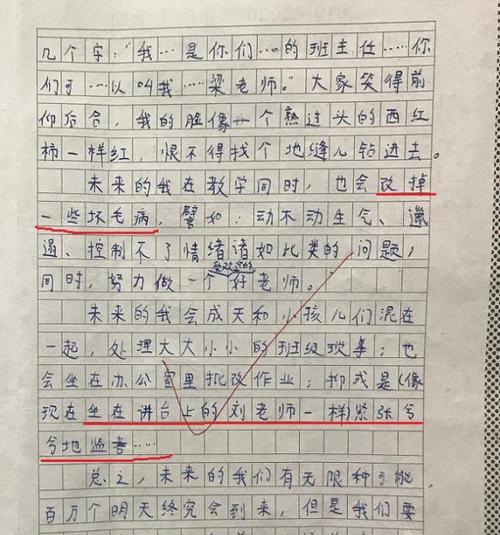 几个字：“我…是你们…的班主任……你
们可…以叫我……梁老师。”大家笑得前
仰后合，我的脸像一个熟过头的西红
柿一样红，恨不得找个地缝儿钻进去。
未来的我在教学同时，也会改掉
一些坏毛病，譬如：动不动生气、邋
遢、控制不了情绪诸如此类的问题，
同时，努力做一个好老师。
未来的我会成天和小孩儿们混在
一起，处理大大小小的班级琐事；也
会坐在办公室里批改作业；抑或是（像
现在坐在讲台上的刘老师一样）紧张兮
兮地监考……
总之，未来的我们有无限种可能，
百万个明天终究会到来，但是我们要